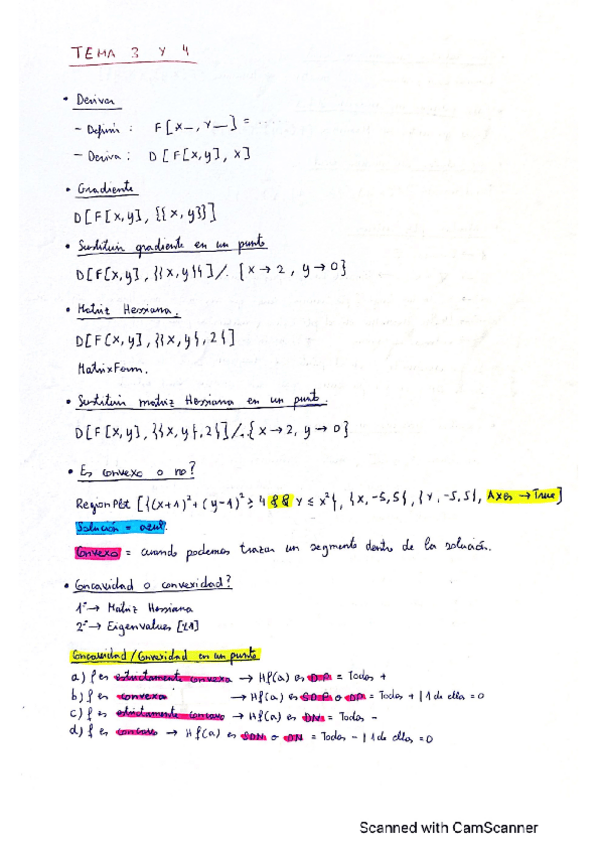 TEMA 3 Y 4
• Derivar
- Definir : F[x_, Y_] = ......
- Deriva : D [F[x,y], x]
• Gradiente
D[F[x,y], {{x,y}}]
• Sustituir gradiente en un punto
D[F[x,y], {{x,y}}]/. {x→2, y→0}
• Matriz Hessiana.
D[F[x,y], {{x,y},2}]
MatrixForm.
• Sustituir matriz Hessiana en un punto.
D[F[x,y], {{x,y},2}]/.{x→2, y→0}
• Es convexo o no?
RegionPlot [{(x+1)²+(y-1)² ≥ 4 && Y ≤ x²}, {x,-5,5}, {Y,-5,5}, Axes → True]
Solución = azul.
Convexo = cuando podemos trazar un segmento dentro de la solución.
• Concavidad o convexidad?
1º → Matriz Hessiana
2º → Eigenvalues [%1]
Concavidad/Convexidad en un punto
a) f es estrictamente convexa → Hf(a) es DP = Todos +
b) f es convexa → Hf(a) es SDP o DP = Todos + | 1 de ellos = 0
c) f es estrictamente concavo → Hf(a) es DN = Todos -
d) f es concavo → Hf(a) es SDN o DN = Todos - | 1 de ellos = 0
Scanned with CamScanner